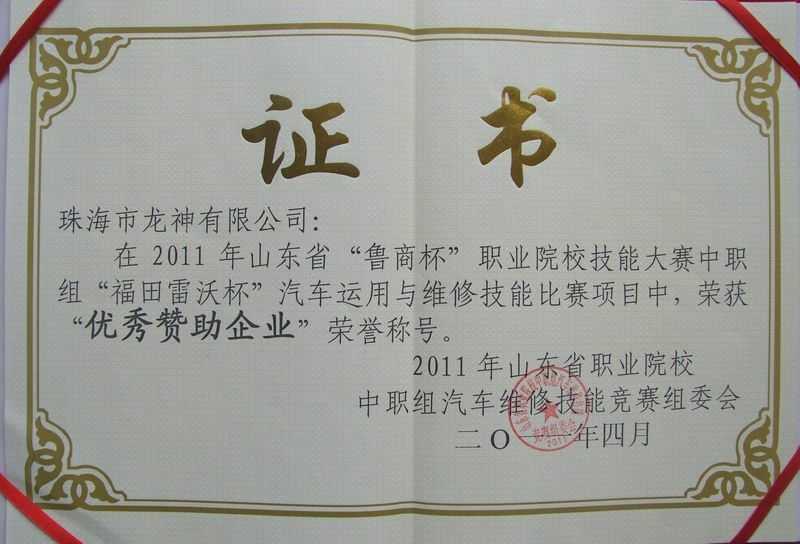 证 书
珠海市龙神有限公司：
在 2011 年山东省“鲁商杯”职业院校技能大赛中职
组“福田雷沃杯”汽车运用与维修技能比赛项目中，荣获
“优秀赞助企业”荣誉称号。
2011 年山东省职业院校
中职组汽车维修技能竞赛组委会
二〇一一年四月
竞赛组委会
2011